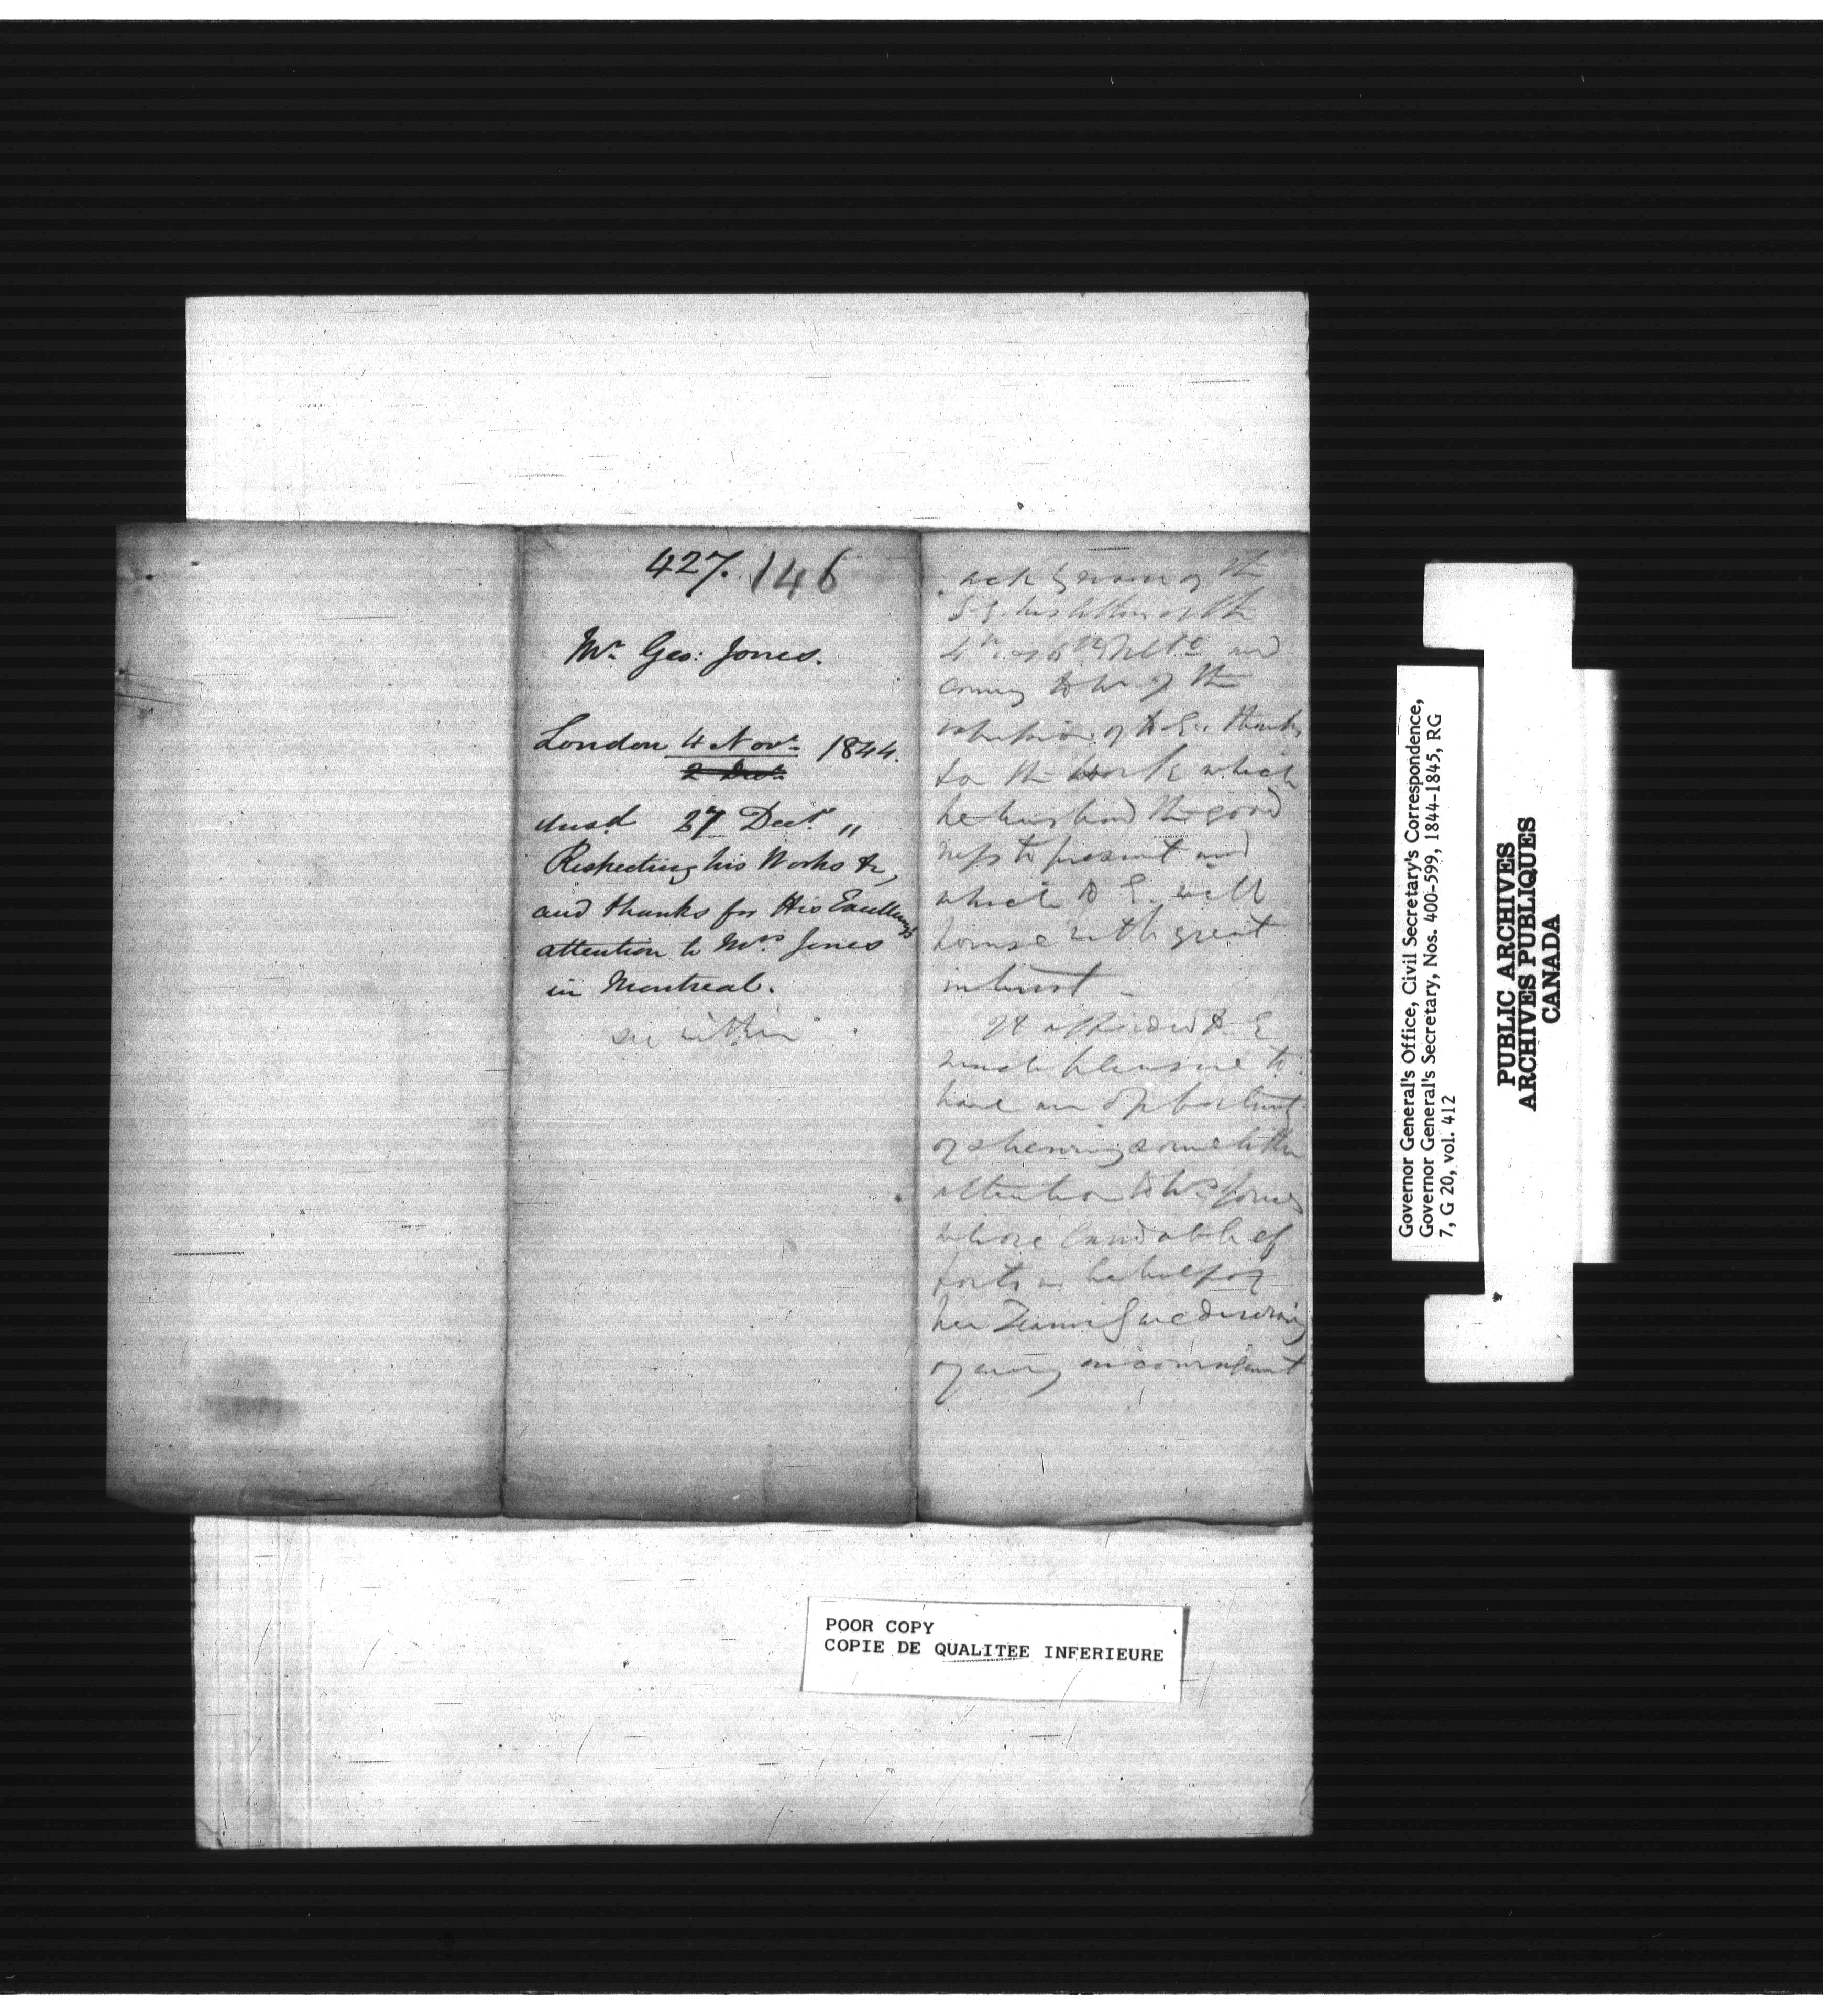 427. 146
Mr. Geo: Jones.
London 4 Novr. 1844.
2 Decr.
Ansd 27 Decr. "
Respecting his Works &c,
and thanks for His Excellency's
attention to Mrs. Jones
in Montreal.
see within
ack
his letters of the
4th and
convey to
of H E. thanks
for the work which
he has had the good
ness to present and
which H E. will
peruse with great
interest -
It afforded H E
much pleasure to
have an opportunity
of shewing some little
attention to Mrs Jones
whose laudable ef
forts in behalf of
her Family are deserving
of every encouragement
Governor General's Office, Civil Secretary's Correspondence,
Governor General's Secretary, Nos. 400-599, 1844-1845, RG
7, G 20, vol. 412
PUBLIC ARCHIVES
ARCHIVES PUBLIQUES
CANADA
POOR COPY
COPIE DE QUALITEE INFERIEURE